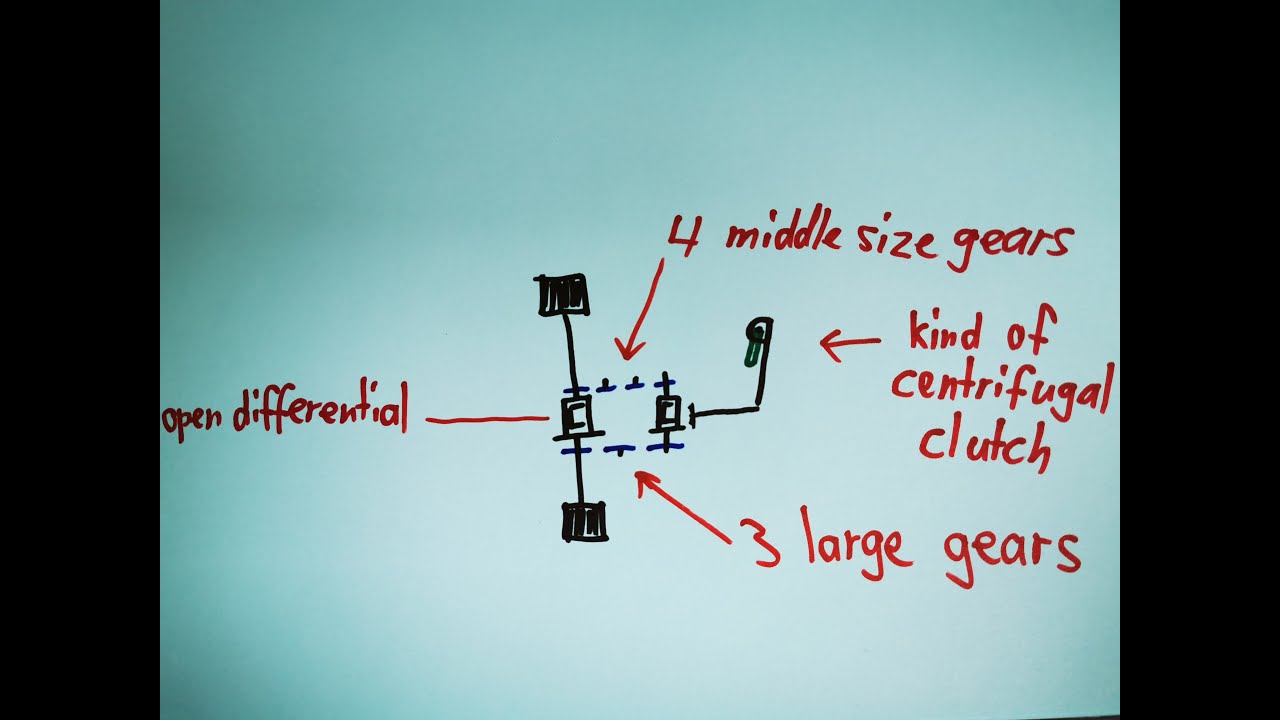 4 middle size gears
kind of
centrifugal
clutch
open differential
3 large gears